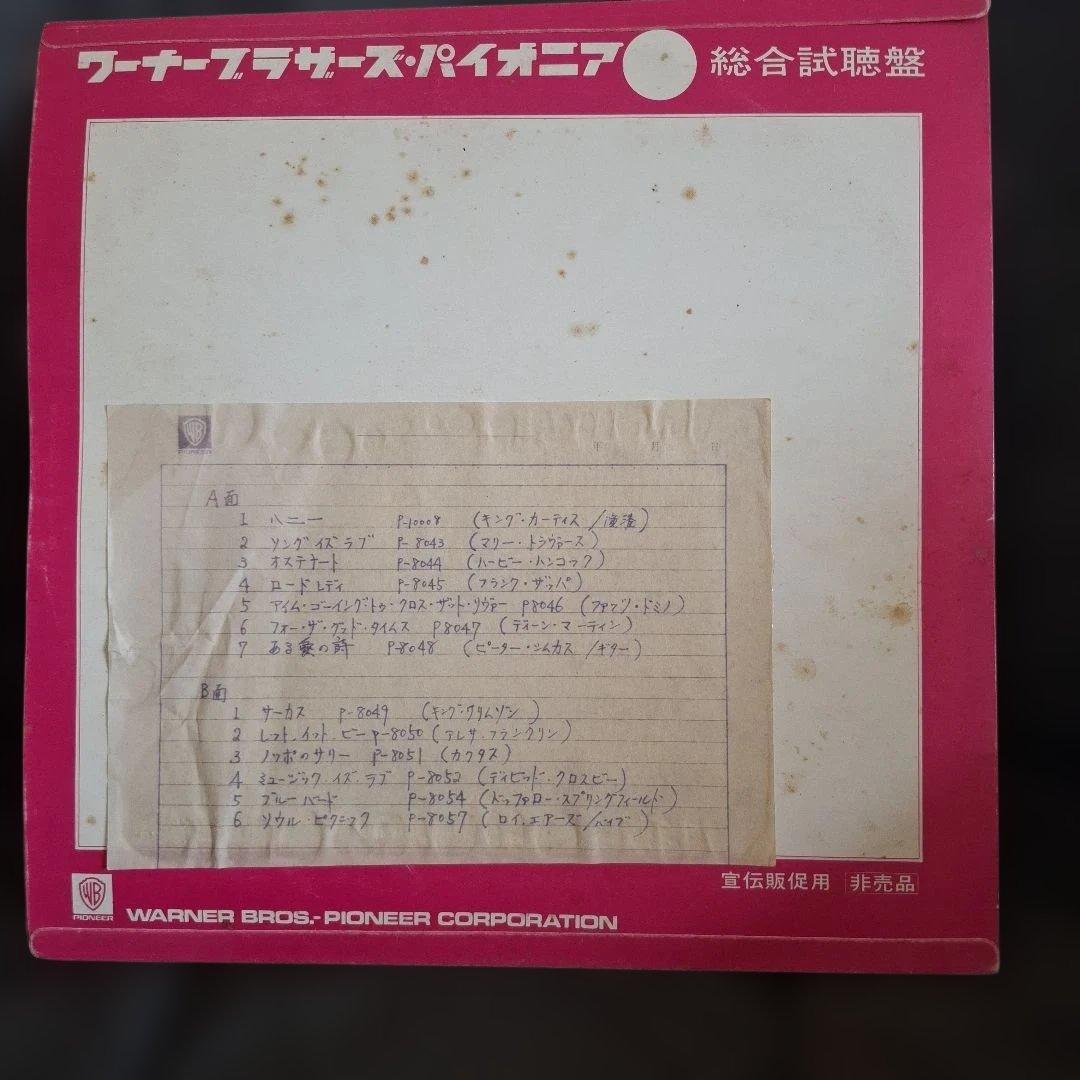 ワーナーブラザーズ・パイオニア 総合試聴盤
WB
PIONEER
年 月 日
A面
1 ハニー P-10008 (キング・カーティス/演奏)
2 ソングイズラブ P-8043 (マリー・トラヴァース)
3 オステナート P-8044 (ハービー・ハンコック)
4 ロードレディ P-8045 (フランク・ザッパ)
5 アイム・ゴーイング・トゥ・クロス・ザット・リヴァー P8046 (ファッツ・ドミノ)
6 フォー・ザ・グッド・タイムス P8047 (ディーン・マーティン)
7 ある愛の詩 P-8048 (ピーター・シムカス/ギター)
B面
1 サーカス P-8049 (キング・クリムゾン)
2 レット・イット・ビー P-8050 (アレサ・フランクリン)
3 ノッポのサリー P-8051 (カクタス)
4 ミュージック・イズ・ラブ P-8052 (ディビッド・クロスビー)
5 ブルーバード P-8054 (バッファロー・スプリングフィールド)
6 ソウル・ピクニック P-8057 (ロイ・エアーズ/バイブ)
宣伝販促用 非売品
WB
PIONEER
WARNER BROS.-PIONEER CORPORATION